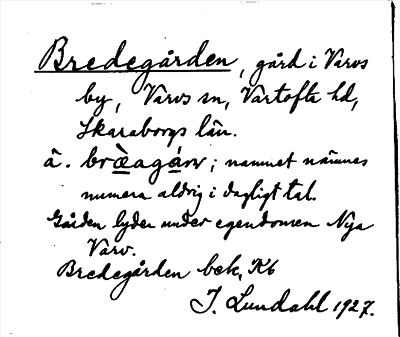 Bredegården, gård i Varvs
by, Varvs sn, Vartofta hd,
Skaraborgs län.
â. brèagánv; namnet nämnes
numera aldrig i dagligt tal.
Gården lyder under egendomen Nya
Varv.
Bredegården bek, Kb
I. Lundahl 1927.